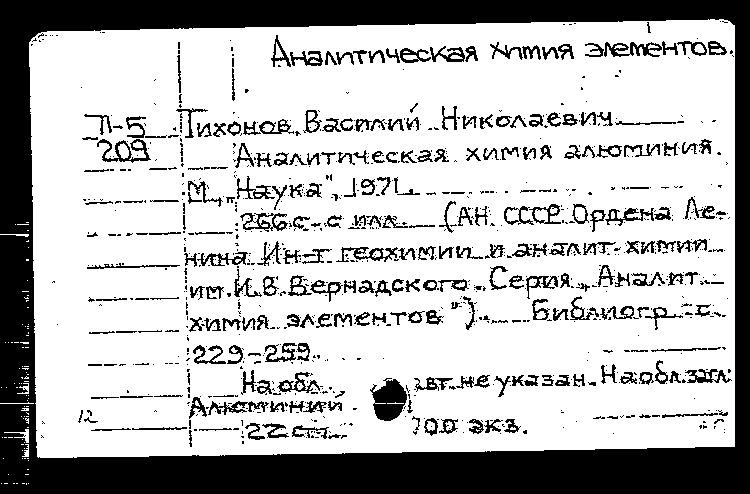 Аналитическая химия элементов.
Л-5 Тихонов, Василий Николаевич
209 Аналитическая химия алюминия.
М., „Наука", 1971.
266 с. с илл. (АН СССР. Ордена Ле-
нина Ин-т геохимии и аналит. химии
им. И.В. Вернадского. Серия „Аналит.
химия элементов"). Библиогр.: с.
229-259.
На обл. авт. не указан. На обл. загл:
Алюминий.
12 22 см. 700 экз.